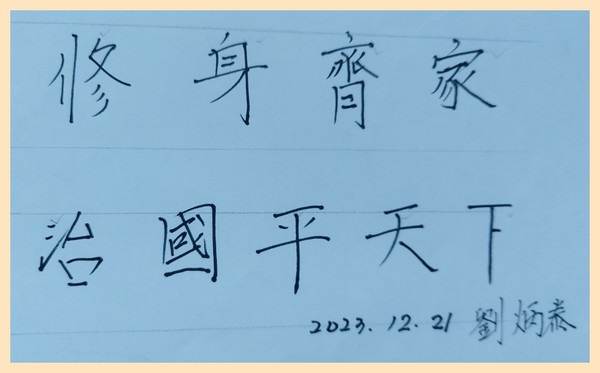 修身齊家
治國平天下
2023.12.21 劉炳恭